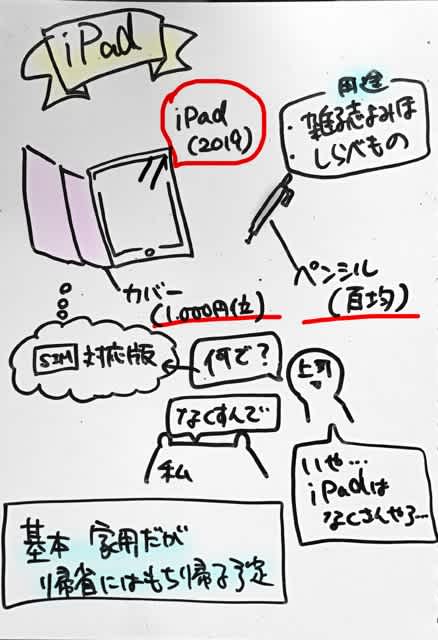 iPad
iPad
(2019)
用途
・雑誌よみほ
・しらべもの
カバー
(1.000円位)
ペンシル
(百均)
SIM 対応版
何で?
上司
なくすんで
私
いや...
iPadは
なくさんやろ...
基本 家用だが
帰省にはもち帰る予定